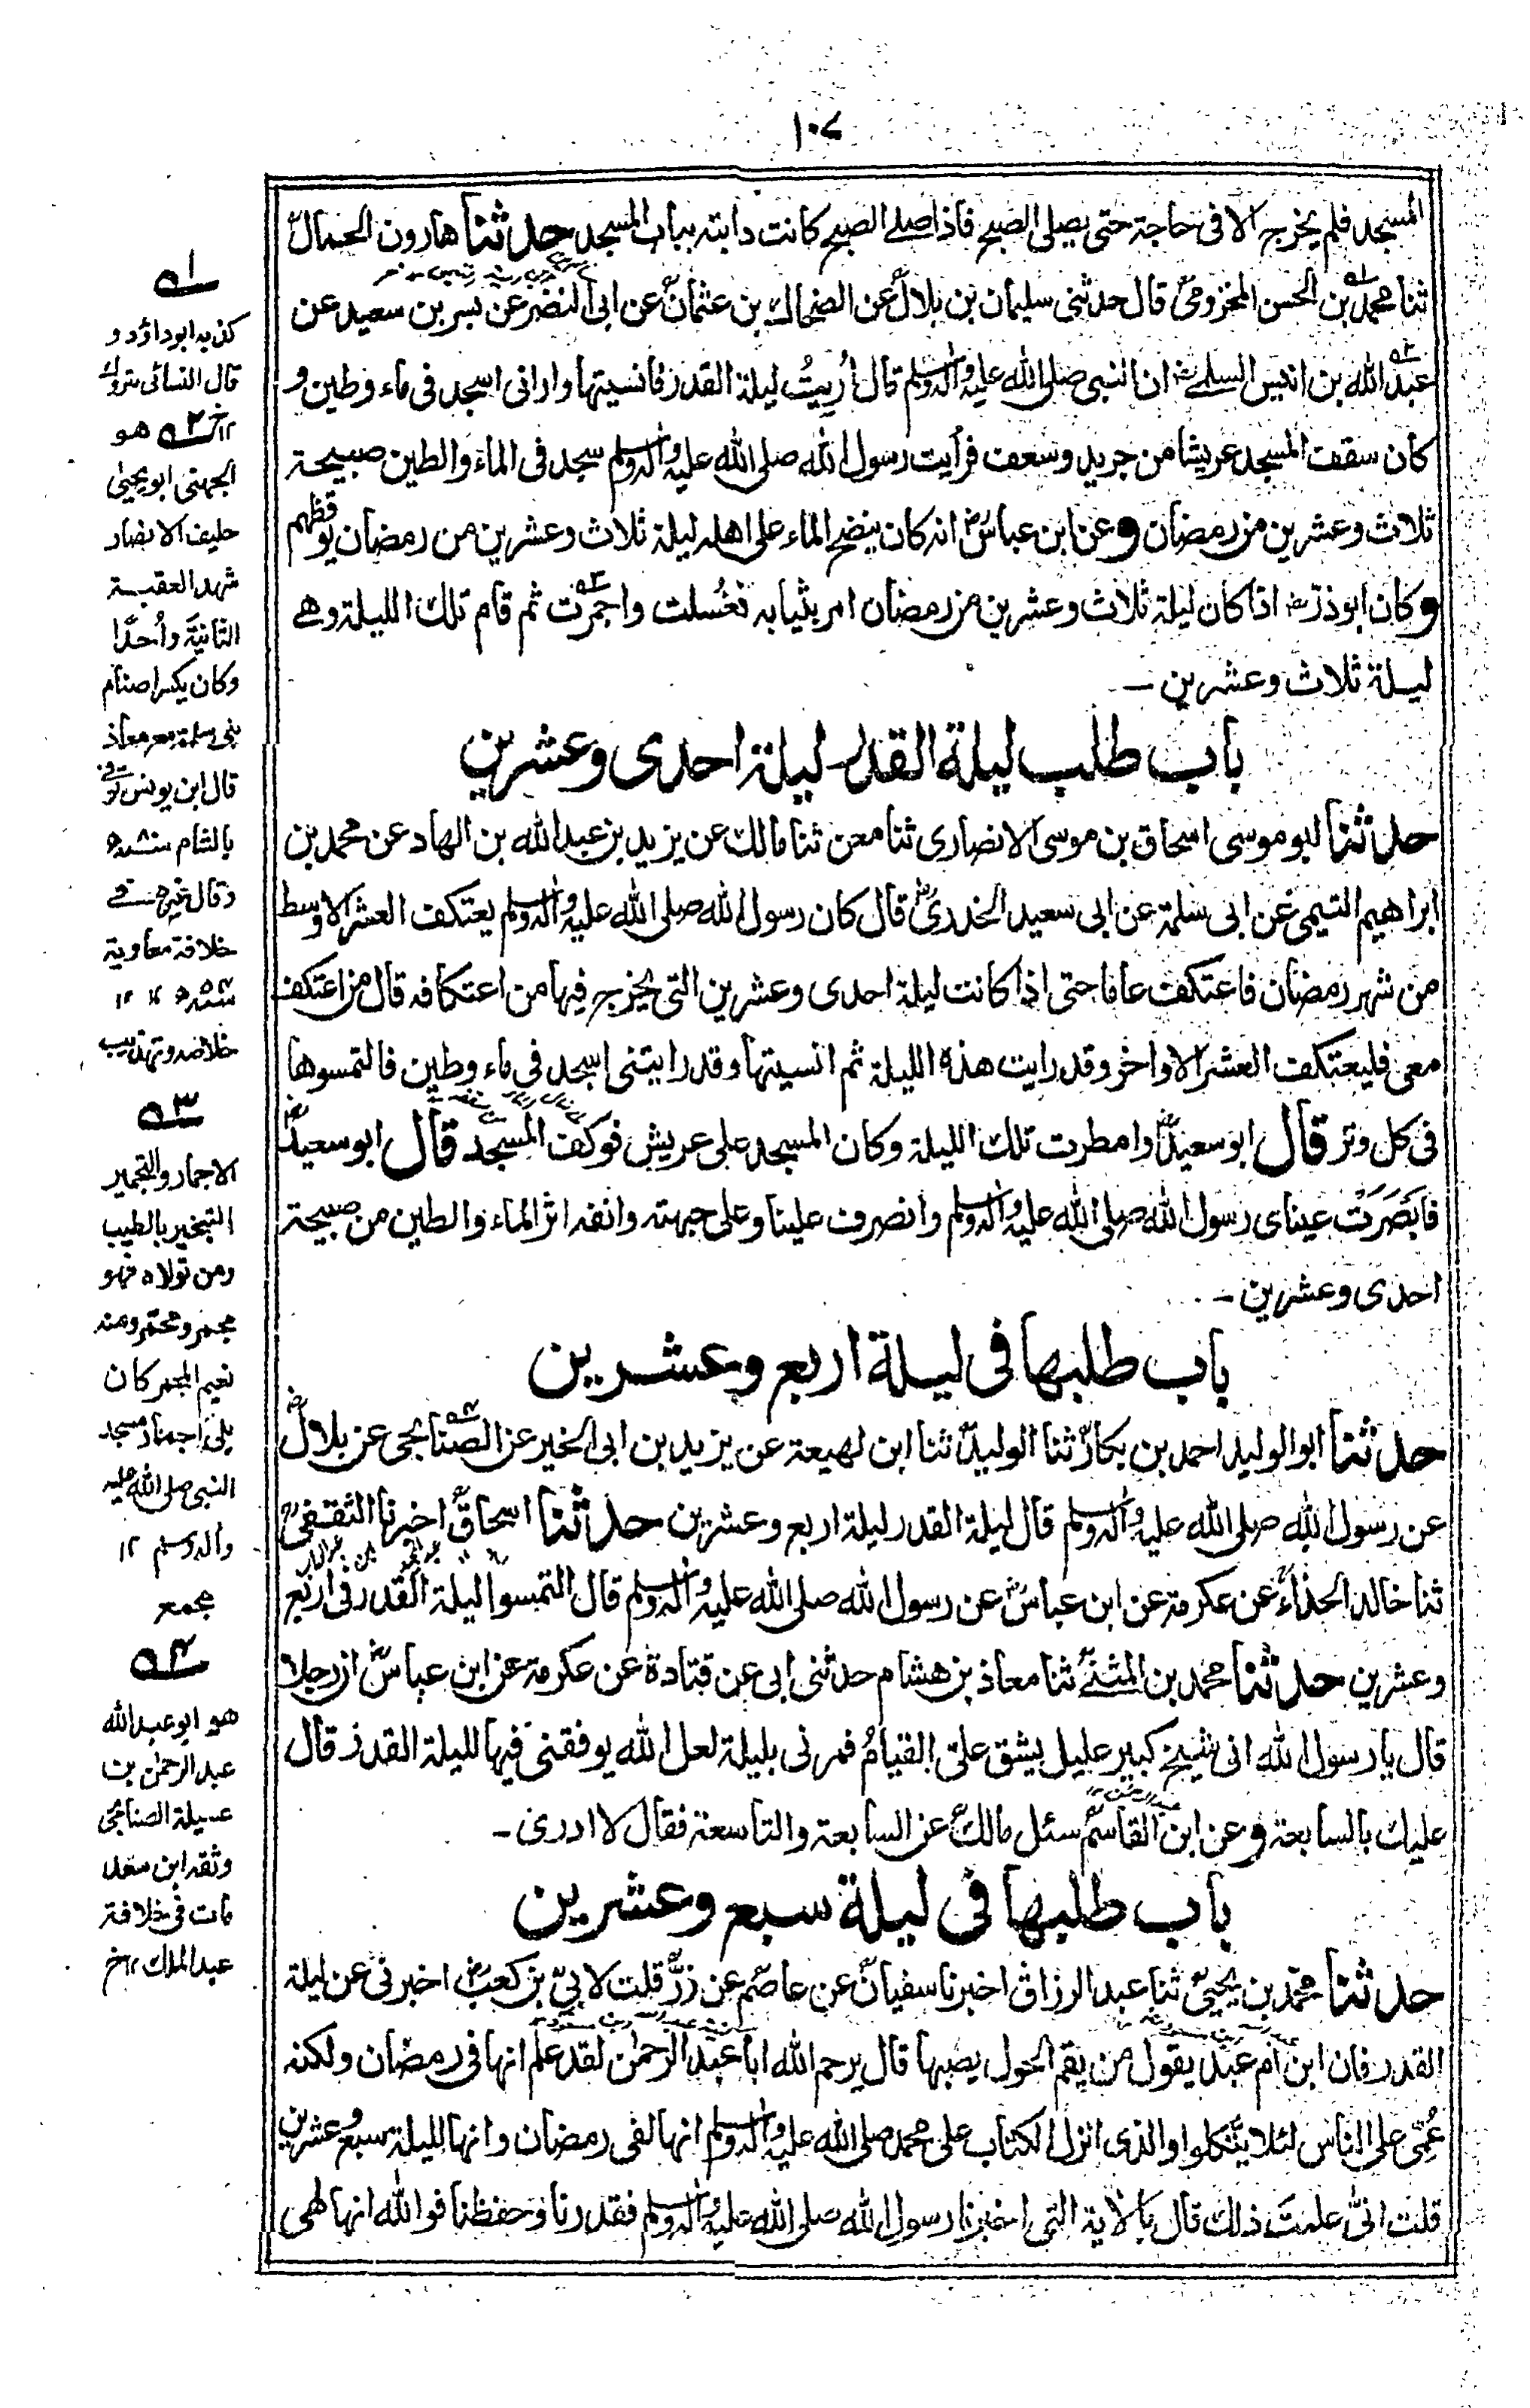 ١٠٧
المسجد فلم يخرج الا فى حاجة حتى يصلى الصبح فاذا صلے الصبح كانت دابته بباب المسجد حدثنا هارون الحمال
ثنا محمد بن الحسن المخزومى قال حدثنى سليمان بن بلال عن الضحاك بن عثمان عن ابى النضر عن بسر بن سعيد عن
عبد الله بن انيس السلمے ان النبى صلى الله عليه واله وسلم قال أُريتُ ليلة القدر فانسيتها وارانى اسجد فى ماء وطين و
كان سقف المسجد عريشا من جريد وسعف فرأيت رسول الله صلى الله عليه واله وسلم سجد فى الماء والطين صبيحة
ثلاث وعشرين من رمضان وعن ابن عباس انه كان ينضح الماء على اهله ليلة ثلاث وعشرين من رمضان يوقظهم
وكان ابوذر اذا كان ليلة ثلاث وعشرين من رمضان امر بثيابه فغُسلت واجمرت ثم قام تلك الليلة وهے
ليلة ثلاث وعشرين ـ
باب طلب ليلة القدر ليلة احدى وعشرين
حدثنا ابو موسى اسحاق بن موسى الانصارى ثنا معن ثنا مالك عن يزيد بن عبد الله بن الهاد عن محمد بن
ابراهيم التيمى عن ابى سلمة عن ابى سعيد الخدرى قال كان رسول الله صلى الله عليه واله وسلم يعتكف العشر الاوسط
من شهر رمضان فاعتكف عاما حتى اذا كانت ليلة احدى وعشرين التى يخرج فيها من اعتكافه قال من اعتكف
معى فليعتكف العشر الاواخر وقد رايت هذه الليلة ثم انسيتها وقد رايتنى اسجد فى ماء وطين فالتمسوها
فى كل وتر قال ابو سعيد وامطرت تلك الليلة وكان المسجد على عريش فوكف المسجد قال ابو سعيد
فابصَرَتْ عيناى رسول الله صلى الله عليه واله وسلم وانصرف علينا وعلى جبهته وانفه اثر الماء والطين من صبيحة
احدى وعشرين ـ
باب طلبها فى ليلة اربع وعشرين
حدثنا ابو الوليد احمد بن بكار ثنا الوليد ثنا ابن لهيعة عن يزيد بن ابى الخير عن الصنابحى عن بلال
عن رسول الله صلى الله عليه واله وسلم قال ليلة القدر ليلة اربع وعشرين حدثنا اسحاق اخبرنا الثقفى
ثنا خالد الحذاء عن عكرمة عن ابن عباس عن رسول الله صلى الله عليه واله وسلم قال التمسوا ليلة القدر فى اربع
وعشرين حدثنا محمد بن المثنے ثنا معاذ بن هشام حدثنى ابى عن قتادة عن عكرمة عن ابن عباس ان رجلا
قال يا رسول الله انى شيخ كبير عليل يشق علىّ القيامُ فمرنى بليلة لعل الله يوفقنى فيها لليلة القدر قال
عليك بالسابعة وعن ابن القاسم سئل مالك عن السابعة والتاسعة فقال لا ادرى ـ
باب طلبها فى ليلة سبع وعشرين
حدثنا محمد بن يحيى ثنا عبد الرزاق اخبرنا سفيان عن عاصم عن زر قلت لابىّ بن كعب اخبرنى عن ليلة
القدر فان ابن ام عبد يقول من يقم الحول يصبها قال يرحم الله ابا عبد الرحمن لقد علم انها فى رمضان ولكنه
عُمّى على الناس لئلا يتكلوا والذى انزل الكتاب على محمد صلى الله عليه واله وسلم انها لفى رمضان وانها لليلة سبع وعشرين
قلت انّى علمتَ ذلك قال بالاية التى اخبرنا رسول الله صلى الله عليه واله وسلم فقدرنا وحفظنا فوالله انها لهى
١ه
كذبه ابو داؤد و
قال النسائى متروك
١٢ خ ٢ه هو
الجهنى ابو يحيىٰ
حليف الانصار
شهد العقبة
الثانية وأُحدًا
وكان يكسر اصنام
بنى سلمة مع معاذ
قال ابن يونس توفے
بالشام سنة ٨٠ه
وقال غيره فے
خلافة معاوية
سنة ٥٤ه ١٢
خلاصه وتهذيب
٣ه
الاجمار والتجمير
التبخير بالطيب
ومن تولاه فهو
مجمر ومجمّر ومنه
نعيم المجمر كان
يلى اجمار مسجد
النبى صلى الله عليه
واله وسلم ١٢
مجمع
٤ه
هو ابو عبد الله
عبد الرحمٰن بن
عسيلة الصنابحى
وثقه ابن سعد
مات فى خلافة
عبد الملك ١٢ خ